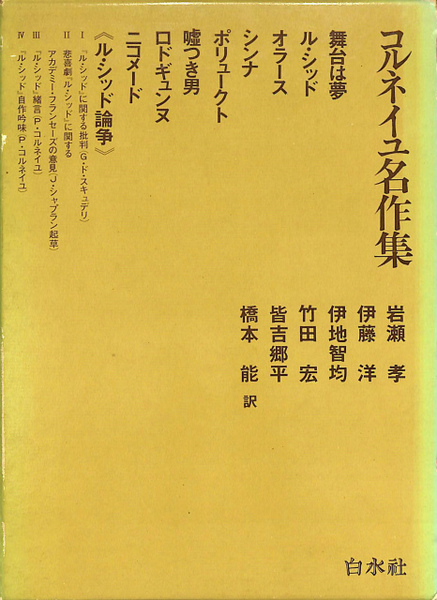 コルネイユ名作集
舞台は夢
ル・シッド
オラース
シンナ
ポリュークト
嘘つき男
ロドギュンヌ
ニコメード
《ル・シッド論争》
I 『ル・シッド』に関する批判(G・ド・スキュデリ)
II 悲喜劇『ル・シッド』に関する
アカデミー・フランセーズの意見(J・シャプラン起草)
III 『ル・シッド』緒言(P・コルネイユ)
IV 『ル・シッド』自作吟味(P・コルネイユ)
岩瀬 孝
伊藤 洋
伊地智均
竹田 宏
皆吉郷平
橋本 能 訳
白水社